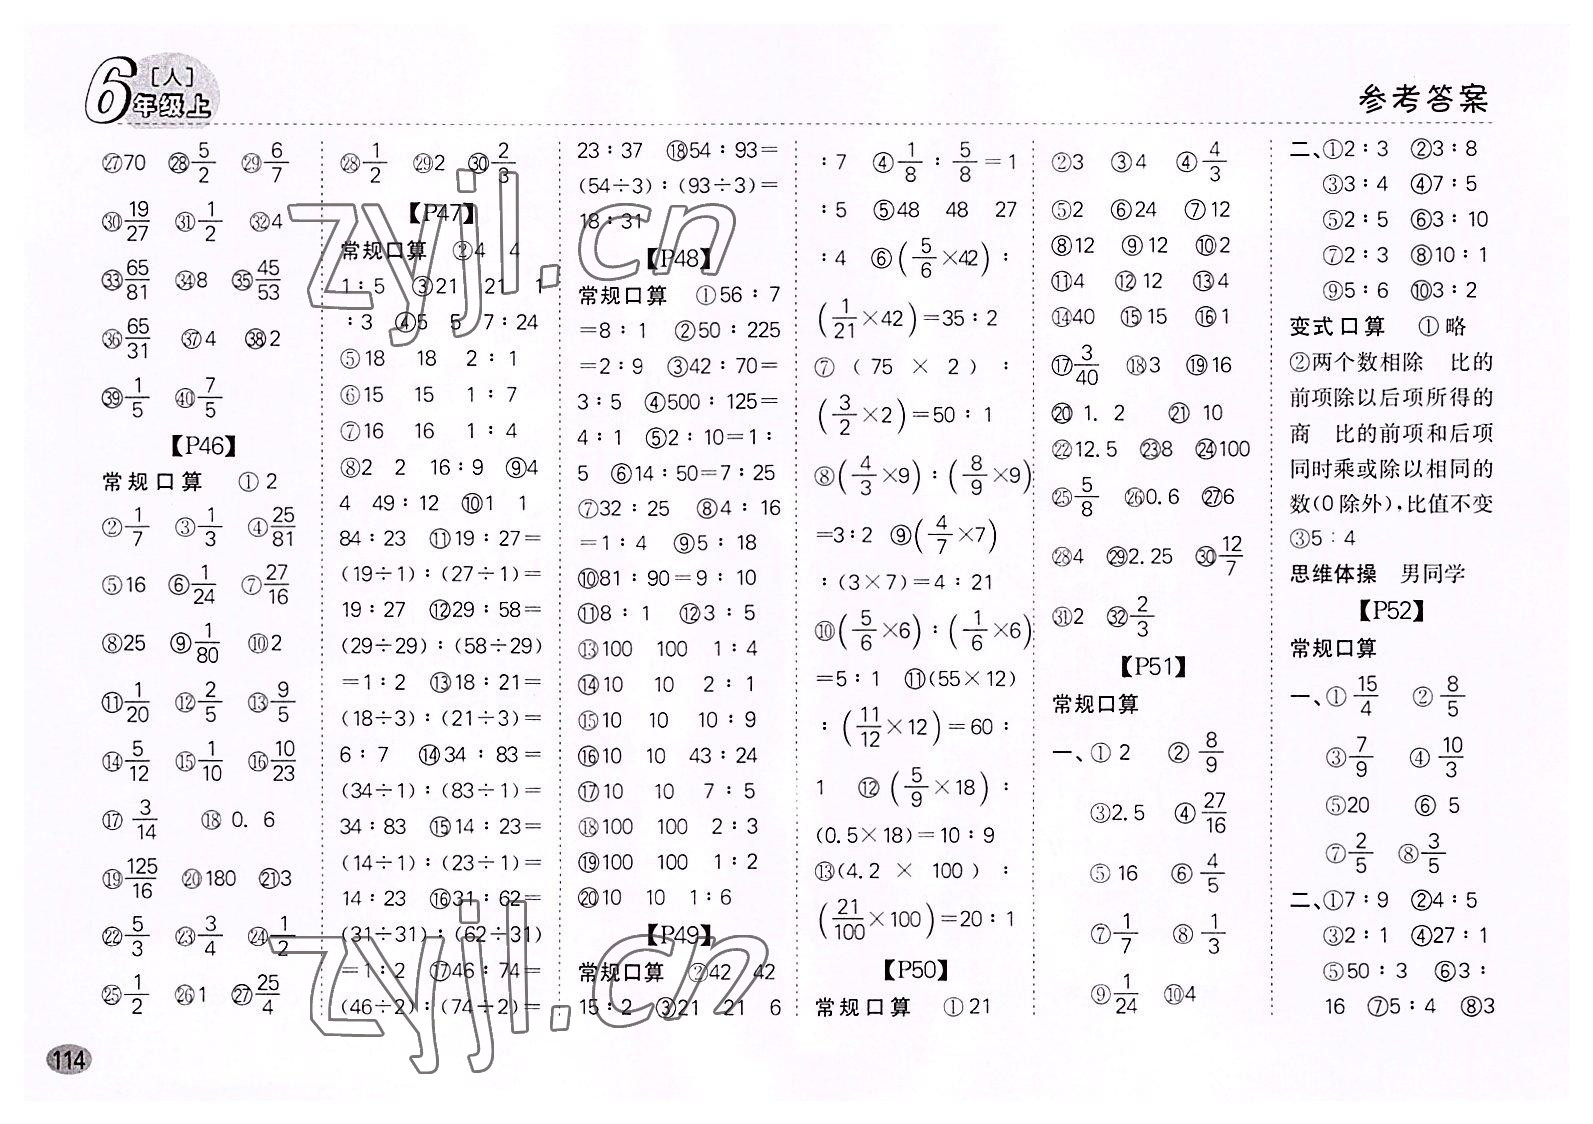 6年级上
[人]
参考答案
㉗70 ㉘5/2 ㉙6/7
㉚19/27 ㉛1/2 ㉜4
㉝65/81 ㉞8 ㉟45/53
㊱65/31 ㊲4 ㊳2
㊴1/5 ㊵7/5
【P46】
常规口算 ①2
②1/7 ③1/3 ④25/81
⑤16 ⑥1/24 ⑦27/16
⑧25 ⑨1/80 ⑩2
⑪1/20 ⑫2/5 ⑬9/5
⑭5/12 ⑮1/10 ⑯10/23
⑰3/14 ⑱0.6
⑲125/16 ⑳180 ㉑3
㉒5/3 ㉓3/4 ㉔1/2
㉕1/2 ㉖1 ㉗25/4
㉘1/2 ㉙2 ㉚2/3
【P47】
常规口算 ②4 4
1∶5 ③21 21 1
∶3 ④5 5 7∶24
⑤18 18 2∶1
⑥15 15 1∶7
⑦16 16 1∶4
⑧2 2 16∶9 ⑨4
4 49∶12 ⑩1 1
84∶23 ⑪19∶27=
(19÷1)∶(27÷1)=
19∶27 ⑫29∶58=
(29÷29)∶(58÷29)
=1∶2 ⑬18∶21=
(18÷3)∶(21÷3)=
6∶7 ⑭34∶83=
(34÷1)∶(83÷1)=
34∶83 ⑮14∶23=
(14÷1)∶(23÷1)=
14∶23 ⑯31∶62=
(31÷31)∶(62÷31)
=1∶2 ⑰46∶74=
(46÷2)∶(74÷2)=
23∶37 ⑱54∶93=
(54÷3)∶(93÷3)=
18∶31
【P48】
常规口算 ①56∶7
=8∶1 ②50∶225
=2∶9 ③42∶70=
3∶5 ④500∶125=
4∶1 ⑤2∶10=1∶
5 ⑥14∶50=7∶25
⑦32∶25 ⑧4∶16
=1∶4 ⑨5∶18
⑩81∶90=9∶10
⑪8∶1 ⑫3∶5
⑬100 100 1∶4
⑭10 10 2∶1
⑮10 10 10∶9
⑯10 10 43∶24
⑰10 10 7∶5
⑱100 100 2∶3
⑲100 100 1∶2
⑳10 10 1∶6
【P49】
常规口算 ②42 42
15∶2 ③21 21 6
∶7 ④1/8∶5/8=1
∶5 ⑤48 48 27
∶4 ⑥(5/6×42)∶
(1/21×42)=35∶2
⑦(75×2)∶
(3/2×2)=50∶1
⑧(4/3×9)∶(8/9×9)
=3∶2 ⑨(4/7×7)
∶(3×7)=4∶21
⑩(5/6×6)∶(1/6×6)
=5∶1 ⑪(55×12)
∶(11/12×12)=60∶
1 ⑫(5/9×18)∶
(0.5×18)=10∶9
⑬(4.2×100)∶
(21/100×100)=20∶1
【P50】
常规口算 ①21
②3 ③4 ④4/3
⑤2 ⑥24 ⑦12
⑧12 ⑨12 ⑩2
⑪4 ⑫12 ⑬4
⑭40 ⑮15 ⑯1
⑰3/40 ⑱3 ⑲16
⑳1.2 ㉑10
㉒12.5 ㉓8 ㉔100
㉕5/8 ㉖0.6 ㉗6
㉘4 ㉙2.25 ㉚12/7
㉛2 ㉜2/3
【P51】
常规口算
一、①2 ②8/9
③2.5 ④27/16
⑤16 ⑥4/5
⑦1/7 ⑧1/3
⑨1/24 ⑩4
二、①2∶3 ②3∶8
③3∶4 ④7∶5
⑤2∶5 ⑥3∶10
⑦2∶3 ⑧10∶1
⑨5∶6 ⑩3∶2
变式口算 ①略
②两个数相除 比的
前项除以后项所得的
商 比的前项和后项
同时乘或除以相同的
数(0除外),比值不变
③5∶4
思维体操 男同学
【P52】
常规口算
一、①15/4 ②8/5
③7/9 ④10/3
⑤20 ⑥5
⑦2/5 ⑧3/5
二、①7∶9 ②4∶5
③2∶1 ④27∶1
⑤50∶3 ⑥3∶
16 ⑦5∶4 ⑧3
114
zyjl.cn
zyjl.cn